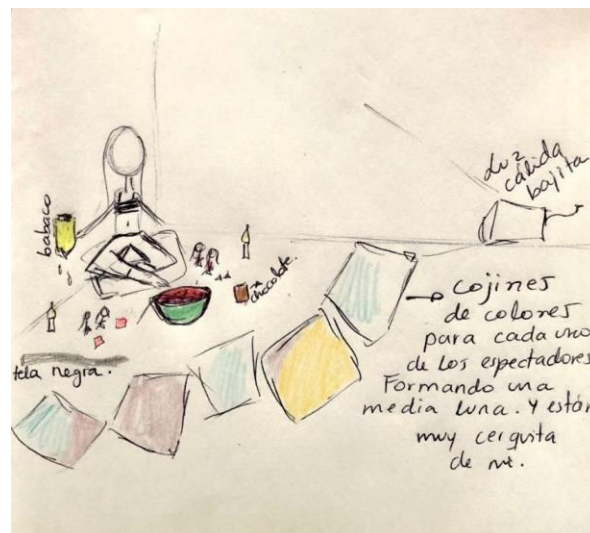 Luz
cálida
bajita
babaco
chocolate.
tela negra.
Cojines
de colores
para cada uno
de los espectadores
Formando una
media luna. Y están
muy cerquita
de mí.